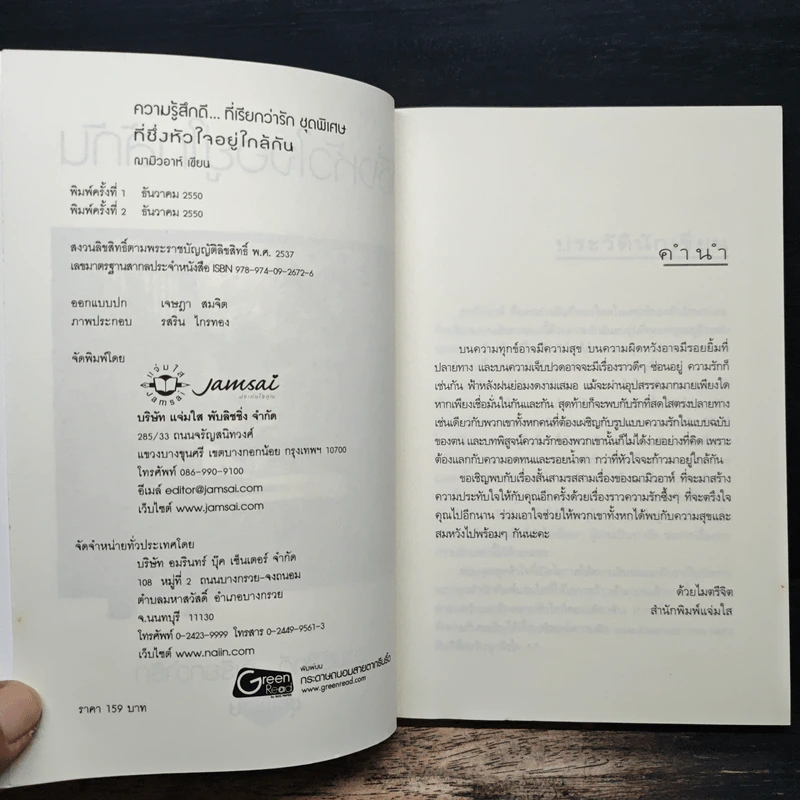 ความรู้สึกดี... ที่เรียกว่ารัก ชุดพิเศษ
ที่ซึ่งหัวใจอยู่ใกล้กัน
ฌามิวอาห์ เขียน
พิมพ์ครั้งที่ 1 ธันวาคม 2550
พิมพ์ครั้งที่ 2 ธันวาคม 2550
สงวนลิขสิทธิ์ตามพระราชบัญญัติลิขสิทธิ์ พ.ศ. 2537
เลขมาตรฐานสากลประจำหนังสือ ISBN 978-974-09-2672-6
ออกแบบปก เจษฎา สมจิต
ภาพประกอบ รสริน ไกรทอง
จัดพิมพ์โดย
แจ่มใส
Jamsai
Jamsai
บริษัท แจ่มใส พับลิชชิ่ง จำกัด
285/33 ถนนจรัญสนิทวงศ์
แขวงบางขุนศรี เขตบางกอกน้อย กรุงเทพฯ 10700
โทรศัพท์ 086-990-9100
อีเมล์ editor@jamsai.com
เว็บไซต์ www.jamsai.com
จัดจำหน่ายทั่วประเทศโดย
บริษัท อมรินทร์ บุ๊ค เซ็นเตอร์ จำกัด
108 หมู่ที่ 2 ถนนบางกรวย-จงถนอม
ตำบลมหาสวัสดิ์ อำเภอบางกรวย
จ.นนทบุรี 11130
โทรศัพท์ 0-2423-9999 โทรสาร 0-2449-9561-3
เว็บไซต์ www.naiin.com
Green Read
พิมพ์บน
กระดาษถนอมสายตากรีนรี้ด
www.greenread.com
ราคา 159 บาท
คำนำ
บนความทุกข์อาจมีความสุข บนความผิดหวังอาจมีรอยยิ้มที่
ปลายทาง และบนความเจ็บปวดอาจจะมีเรื่องราวดีๆ ซ่อนอยู่ ความรักก็
เช่นกัน ฟ้าหลังฝนย่อมงดงามเสมอ แม้จะผ่านอุปสรรคมากมายเพียงใด
หากเพียงเชื่อมั่นในกันและกัน สุดท้ายก็จะพบกับรักที่สดใสตรงปลายทาง
เช่นเดียวกับพวกเขาทั้งหกคนที่ต้องเผชิญกับรูปแบบความรักในแบบฉบับ
ของตน และบทพิสูจน์ความรักของพวกเขานั้นก็ไม่ได้ง่ายอย่างที่คิด เพราะ
ต้องแลกกับความอดทนและรอยน้ำตา กว่าที่หัวใจจะก้าวมาอยู่ใกล้กัน
ขอเชิญพบกับเรื่องสั้นสามรสสามเรื่องของฌามิวอาห์ ที่จะมาสร้าง
ความประทับใจให้กับคุณอีกครั้งด้วยเรื่องราวความรักซึ้งๆ ที่จะตรึงใจ
คุณไปอีกนาน ร่วมเอาใจช่วยให้พวกเขาทั้งหกได้พบกับความสุขและ
สมหวังไปพร้อมๆ กันนะคะ
ด้วยไมตรีจิต
สำนักพิมพ์แจ่มใส